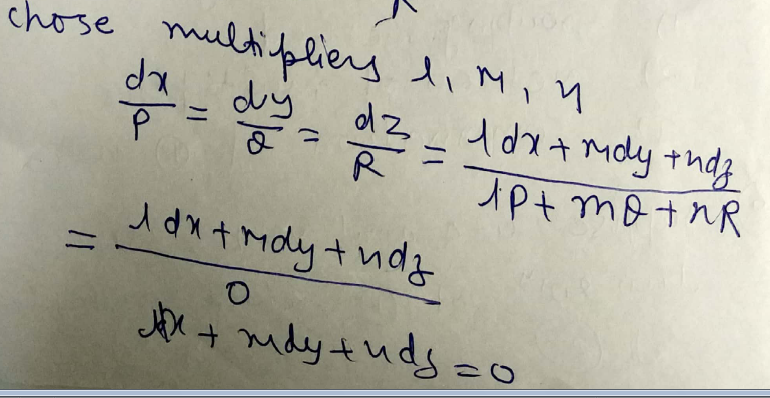 chose multipliers l, m, n
dx/P = dy/Q = dz/R = ldx + mdy + ndz / lP + mQ + nR
= ldx + mdy + ndz / 0
ldx + mdy + ndz = 0